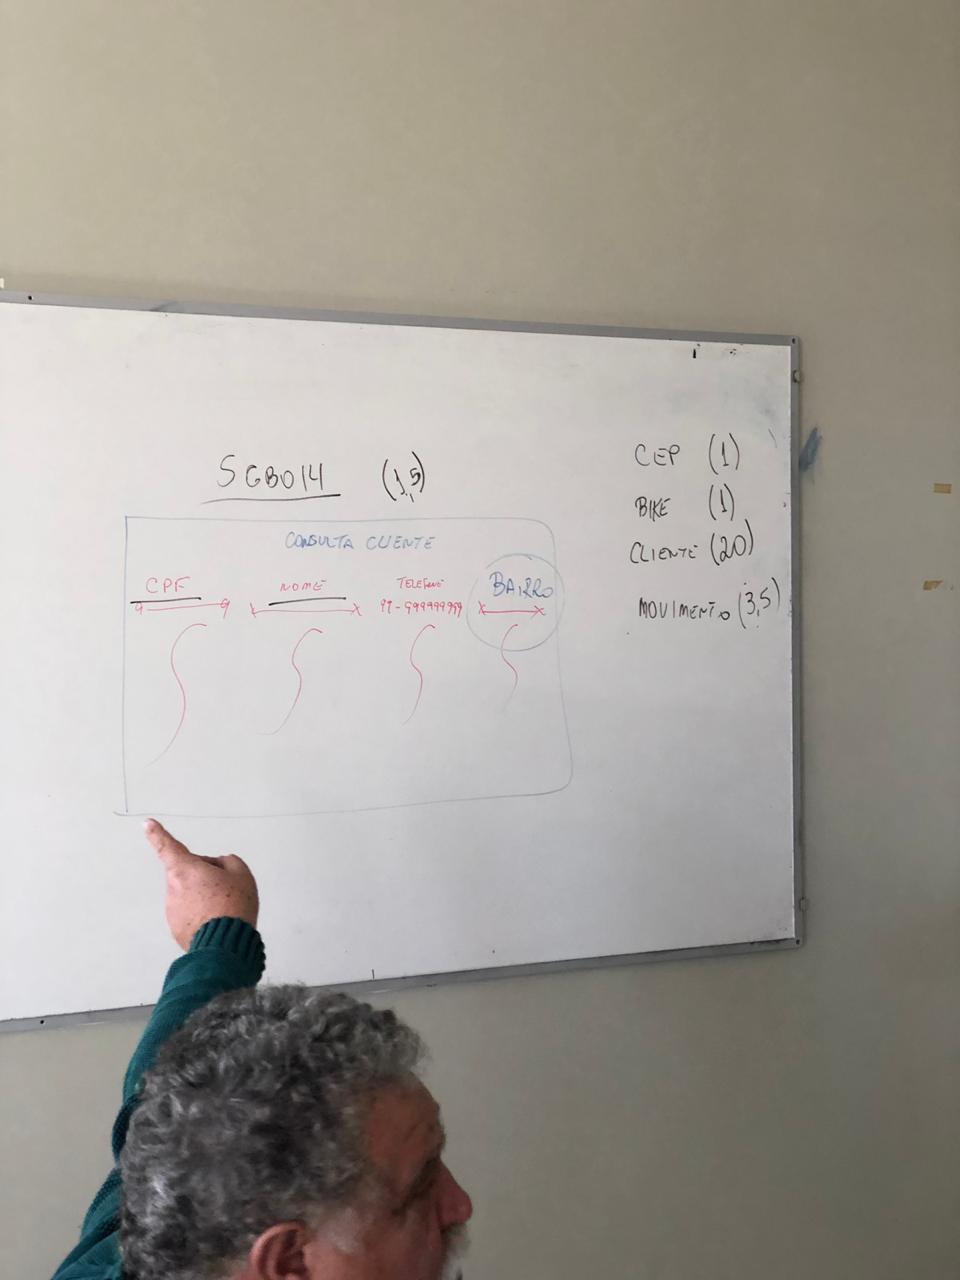 SGB014 (1,5)
CONSULTA CLIENTE
CPF NOME TELEFONE BAIRRO
9 9 X X 99-999999999 X X
CEP (1)
BIKE (1)
CLIENTE (20)
MOVIMENTO (3,5)